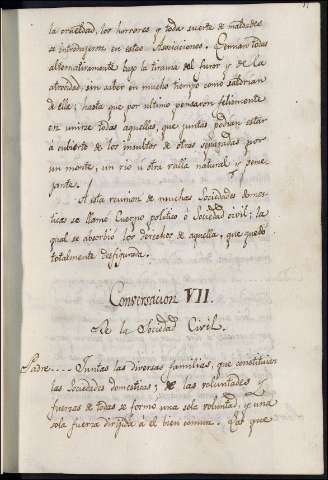 la crueldad, los horrores y toda suerte de maldades
se introdugeron en estas Asociaciones. Gemian todas
alternativamente bajo la tirania del furor y de la
atrocidad, sin saber en mucho tiempo como saldrian
de ella; hasta que por ultimo pensaron felizmente
en unirse todas aquellas, que juntas podian estar
á cubierto de los insultos de otras separadas por
un monte, un rio ú otra valla natural y pene
trante.
A esta reunion de muchas Sociedades domes-
ticas se llamó Cuerpo politico ó Sociedad civil; la
qual se absorbió los derechos de aquella, que quedó
totalmente desfigurada.
Conversacion VII.
De la Sociedad Civil.
Padre.... Juntas las diversas familias, que constituian
las Sociedades domesticas; de las voluntades y
fuerzas de todas se formó una sola voluntad, y una
sola fuerza dirigida á el bien comun. Las que